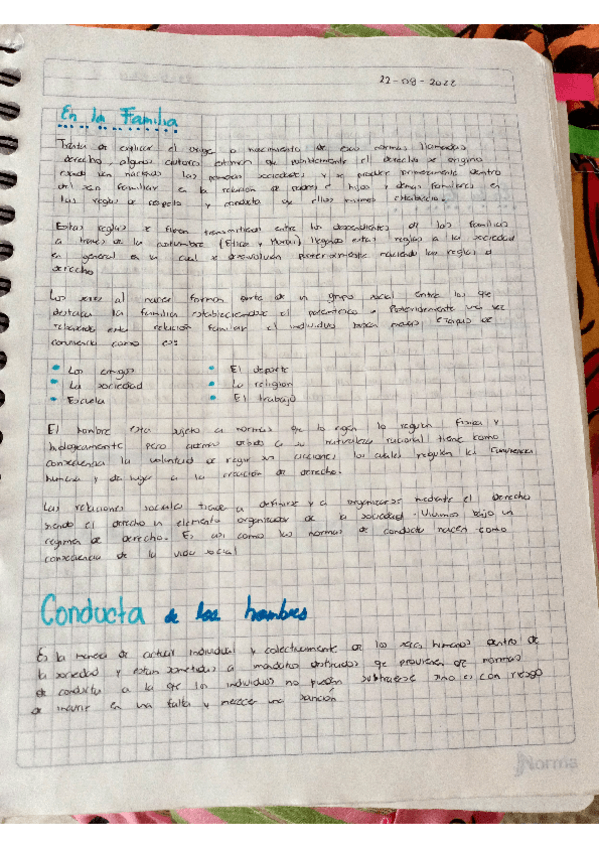 22-09-2022
En la Familia
Trata de explicar el orige o nacimiento de esas normas llamadas
derecho, algunos autores estiman que posiblemente el derecho se origino
cuando van naciendo las primeras sociedades y se producen primeramente dentro
del seno familiar en la relacion de padres e hijos y demas familiares en
las reglas de respeto y conducta que ellos mismos establecio.
Estas reglas se fueron transmitiendo entre los descendientes de las familias
a traves de la costumbre (Etica y Moral) llegando estas reglas a la sociedad
en general en la cual se desvuelven posteriormente naciendo las reglas d
derecho
Los seres al nacer forman parte de un grupo social entre los que
destaca la familia estableciendose el parentesco. Posteriormente una vez
relacionado esta relación familiar el individuo busca nuevas etapas de
convivencia como es:
• Los amigos • El deporte
• La sociedad • La religion
• Escuela • El trabajo
El hombre esta sujeto a normas que lo rigen lo regulan Fisica y
biologicamente pero debido a su naturaleza racional tiene como
consecuencia la voluntad de regir sus acciones los cuales regulan la convivencia
humana y da lugar a la creación de derecho.
Las relaciones sociales tiende a definirse y a organizarse mediante el derecho
siendo el derecho un elemento organizador de la sociedad. Vivimos bajo un
regimen de derecho. Es asi como las normas de conducta nacen como
consecuencia de la vida social
Conducta de los hombres
Es la manera de actuar individual y colectivamente de los seres humanos dentro de
la sociedad y estan sometidas a mandatos destinados que provienen de normas
de conducta a la que los individuos no pueden subtraerse sino es con riesgo
de incurrir en una falta y merecer una sanción
Norma